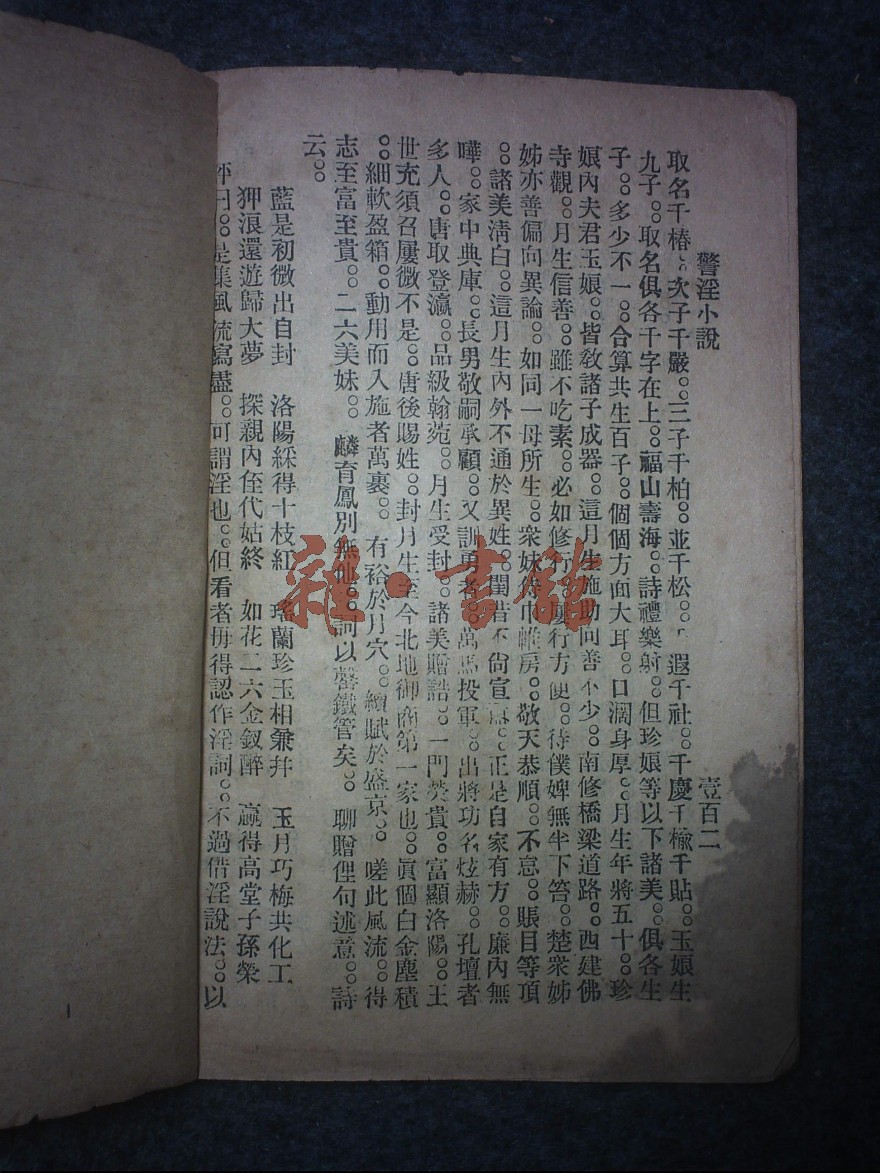 警淫小說 壹百二
取名千椿。次子千嚴。。三子千柏。。並千松。。遐千社。。千慶千楡千貼。。玉娘生
九子。。取名俱各千字在上。。福山壽海。。詩禮樂射。。但珍娘等以下諸美。。俱各生
子。。多少不一。。合算共生百子。。個個方面大耳。。口濶身厚。。月生年將五十。。珍
娘內夫君玉娘。。皆教諸子成器。。這月生施助向善不少。。南修橋梁道路。。西建佛
寺觀。。月生信善。。雖不吃素。。必如修行。屢行方便。。待僕婢無半下答。。楚衆姊
姊亦善偏向異論。。如同一母所生。。衆妹侍巾帷房。。敬天恭順。。不怠。。賬目等頂
。。諸美淸白。。這月生內外不通於異姓。。閨皆不倘宣。。正是自家有方。。廉內無
嘩。。家中典庫。。長男敬嗣承顧。。又訓勇者。。萬馬投軍。。出將功名炫赫。。孔壇者
多人。。唐取登瀛。。品級翰菀。。月生受封。。諸美贈誥。。一門榮貴。。富顯洛陽。。王
世充須召屢微不是。。唐後賜姓。。封月生至今北地御商第一家也。。眞個白金塵積
。。細軟盈箱。。動用而入施者萬裹。。有裕於月穴。。續賦於盛京。。嗟此風流。。得
志至富至貴。。二六美妹。。麟育鳳別無他。。詞以罄鐵管矣。。聊贈俚句述意。。詩
云。。
藍是初微出自封 洛陽綵得十枝紅 瑤蘭珍玉相兼幷 玉月巧梅共化工
狎浪還遊歸大夢 探親內侄代姑終 如花二六金釵醉 贏得高堂子孫榮
評曰。。是集風流寫盡。。可謂淫也。。但看者毋得認作淫詞。。不過借淫說法。。以
雜·書館